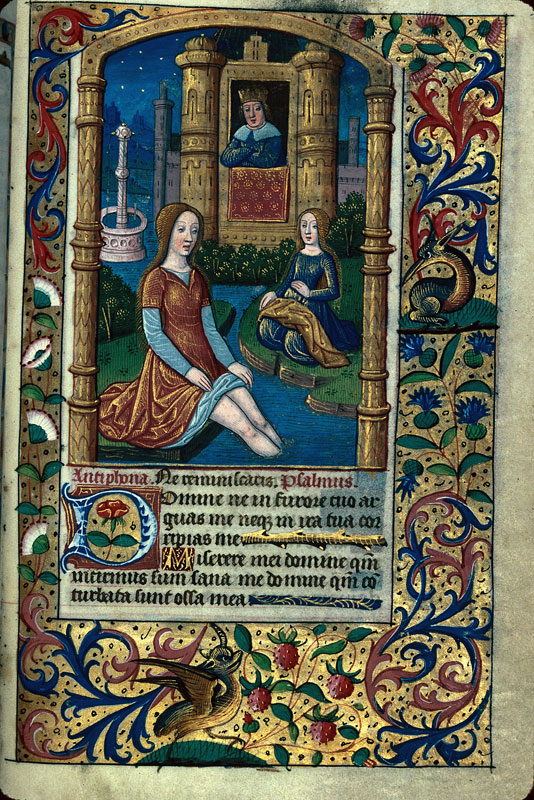 Antiphona. Ne reminiscaris. Psalmus.
Domine ne in furore tuo ar
guas me neq; in ira tua cor
ripias me
Miserere mei domine qm̄
infirmus sum sana me domine qm̄ cō
turbata sunt ossa mea